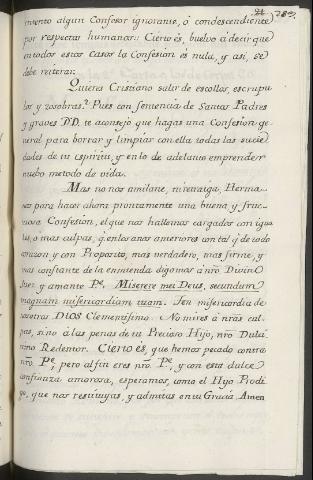 24 289.
mento algun Confesor ignorante, ó condescendiente
por respectos humanos: Cierto és, buelvo á decir que
en todos estos casos la Confesion és nula, y asi, se
debe reiterar.
Quieres Cristiano salir de escollos, escrupu
los y zozobras? Pues con sentencia de Santos Padres
y graves DD. te aconsejo que hagas una Confesion ge
neral para borrar y limpiar con ella todas las sucie
dades de tu espiritu, y en lo de adelante emprender
nuebo metodo de vida.
Mas no nos amilane, ni Herma-
nos para hacer ahora prontamente una buena y fruc-
tuosa Confesion, el que nos hallemos cargados con igua
les, o mas culpas, q. en los anos anteriores con tal q. de todo
corazon y con Proposito, mas verdadero, mas firme, y
mas constante de la enmienda digamos á nro Divin
Juez y amante Pe. Miserere mei Deus, secundum
magnam misericordiam tuam. Ten misericordia de
nosotros DIOS Clementisimo. No mires á nras cul
pas, sino á las penas de tu Precioso Hijo, nro Dulci
simo Redentor. Cierto és, que hemos pecado contra
nro Pe, pero al fin eres nro Pe, y con esta dulce
confianza amorosa, esperamos, como el Hijo Prodi
go, que nos restituyas, y admitas en tu Gracia. Amen